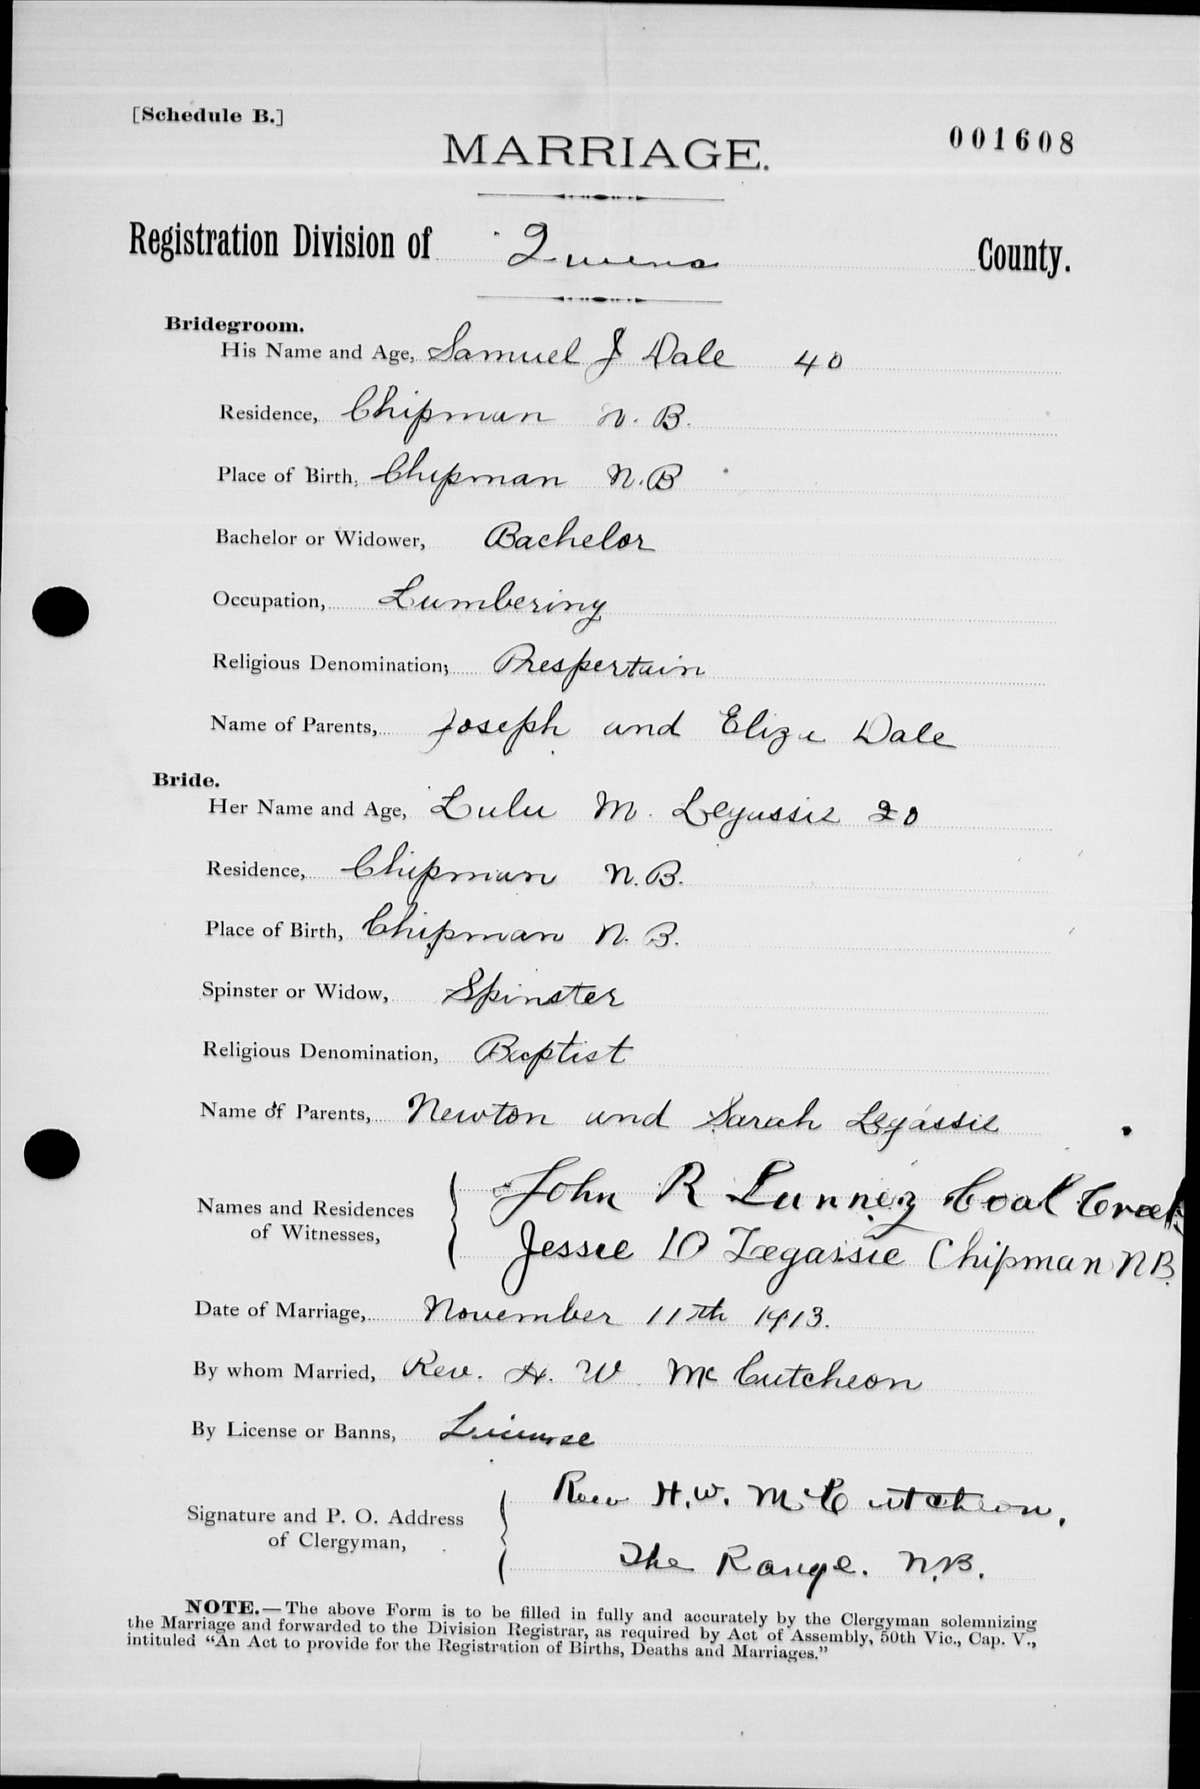 [Schedule B.]
MARRIAGE.
001608
Registration Division of Queens County.
Bridegroom.
His Name and Age, Samuel J Dale 40
Residence, Chipman N. B.
Place of Birth, Chipman N. B
Bachelor or Widower, Bachelor
Occupation, Lumbering
Religious Denomination, Prespertain
Name of Parents, Joseph and Eliza Dale
Bride.
Her Name and Age, Lulu M. Legassie 20
Residence, Chipman N. B.
Place of Birth, Chipman N. B.
Spinster or Widow, Spinster
Religious Denomination, Baptist
Name of Parents, Newton and Sarah Legassie
Names and Residences
of Witnesses,
John R Coal Creek
Jessie Legassie Chipman N B.
Date of Marriage, November 11th 1913.
By whom Married, Rev. H. W. McCutcheon
By License or Banns, License
Signature and P. O. Address
of Clergyman,
Rev H. W. McCutcheon,
The Range. N. B.
NOTE.—The above Form is to be filled in fully and accurately by the Clergyman solemnizing
the Marriage and forwarded to the Division Registrar, as required by Act of Assembly, 50th Vic., Cap. V.,
intituled “An Act to provide for the Registration of Births, Deaths and Marriages.”